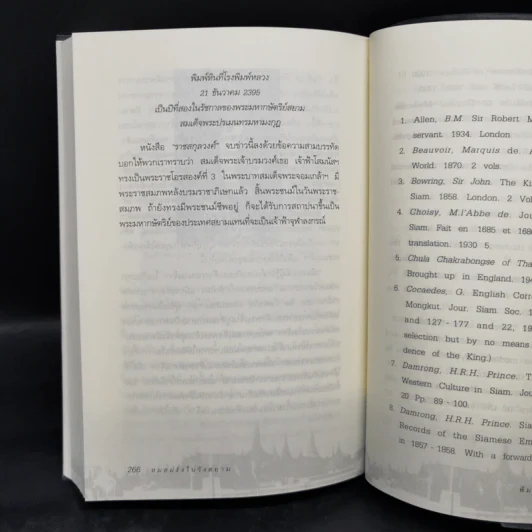 พิมพ์หินที่โรงพิมพ์หลวง
21 ธันวาคม 2395
เป็นปีที่สองในรัชกาลของพระมหากษัตริย์สยาม
สมเด็จพระปรเมนทรมหามงกุฎ
หนังสือ "ราชสกุลวงศ์" จบข่าวนี้ลงด้วยข้อความสามบรรทัด
บอกให้พวกเราทราบว่า สมเด็จพระเจ้าบรมวงศ์เธอ เจ้าฟ้าโสมนัสฯ
ทรงเป็นพระราชโอรสองค์ที่ 3 ในพระบาทสมเด็จพระจอมเกล้าฯ มี
พระราชสมภพหลังบรมราชาภิเษกแล้ว สิ้นพระชนม์ในวันพระราช-
สมภพ ถ้ายังทรงมีพระชนม์ชีพอยู่ ก็จะได้รับการสถาปนาขึ้นเป็น
พระมหากษัตริย์ของประเทศสยามแทนที่จะเป็นเจ้าฟ้าจุฬาลงกรณ์
266
1. Allen, B.M. Sir Robert M
servant. 1934. London
2. Beauvoir, Marquis de. A
World. 1870. 2 vols.
3. Bowring, Sir John. The Ki
Siam. 1858. London. 2 Vol
4. Choisy, M.l'Abbe de. Jou
Siam. Fait en 1685 et 168
translation. 1930 5.
5. Chula Chakrabongse of Tha
Brought up in England. 194
6. Cocaedes, G. English Corr
Mongkut. Jour. Siam Soc. 1
and 127 - 177 and 22, 19
selection but by no means
dence of the King.)
7. Damrong, H.R.H. Prince. T
Western Culture in Siam. Jou
20 Pp. 89 - 100.
8. Damrong, H.R.H. Prince. Sia
Records of the Siamese Em
in 1857 - 1858. With a forward